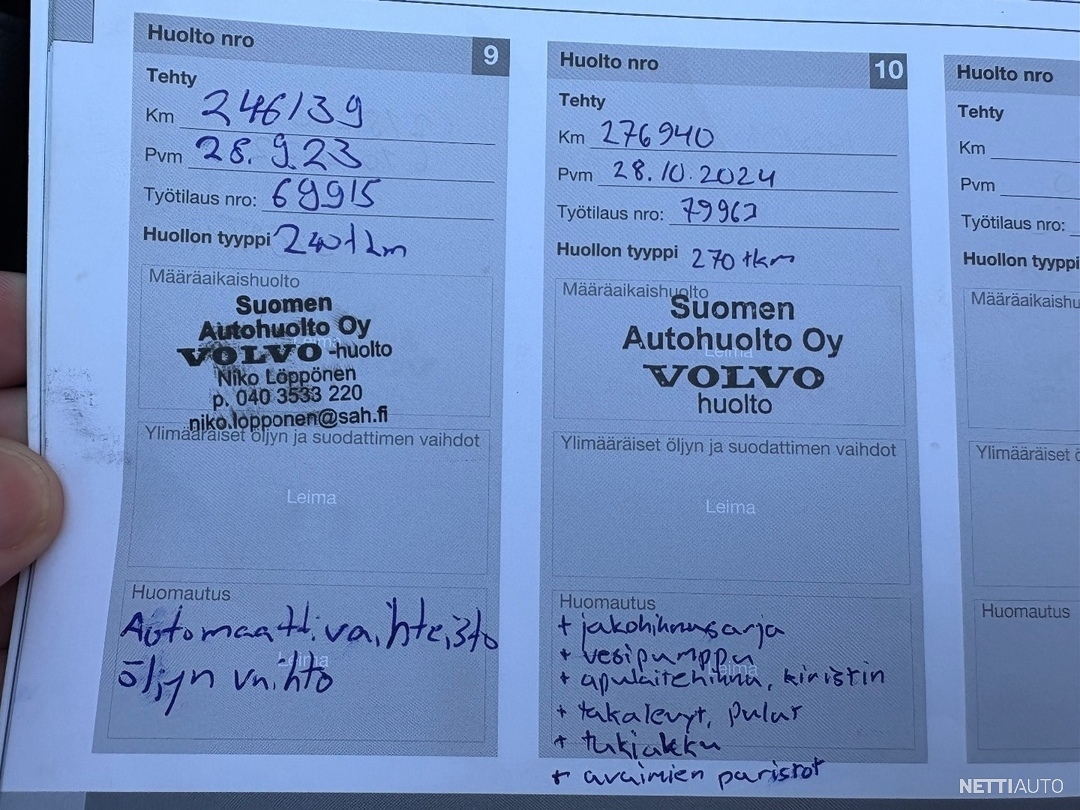 Huolto nro 9
Tehty
Km 246139
Pvm 28.9.23
Työtilaus nro: 69915
Huollon tyyppi 240 tkm
Määräaikaishuolto
Leima
Suomen
Autohuolto Oy
VOLVO -huolto
Niko Löppönen
p. 040 3533 220
niko.lopponen@sah.fi
Ylimääräiset öljyn ja suodattimen vaihdot
Leima
Huomautus
Automaattivaihteisto
Leima
öljyn vaihto
Huolto nro 10
Tehty
Km 276940
Pvm 28.10.2024
Työtilaus nro: 79962
Huollon tyyppi 270 tkm
Määräaikaishuolto
Suomen
Autohuolto Oy
Leima
VOLVO
huolto
Ylimääräiset öljyn ja suodattimen vaihdot
Leima
Huomautus
+ jakohihnasarja
+ vesipumppu
Leima
+ apulaitehihna, kiristin
+ takalevyt, palat
+ tukiakku
+ avaimien paristot
Huolto nro
Tehty
Km
Pvm
Työtilaus nro:
Huollon tyyppi
Määräaikaishu
Ylimääräiset ö
Huomautus
NETTIAUTO